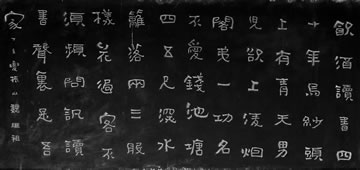 飲酒讀書四
十年烏紗頭
上有青天男
兒欲上凌烟
閣第一功名
不愛錢池塘
四五尺深水
籬落兩三般
樣花過客不
須頻問訊讀
書聲裏是吾
家